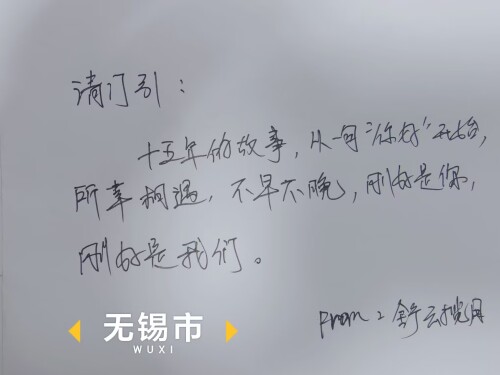 请订引：
十五年的故事，从一句“你好”开始，
所幸相遇，不早不晚，刚好是你，
刚好是我们。
From：舒云揽月
无锡市
WUXI